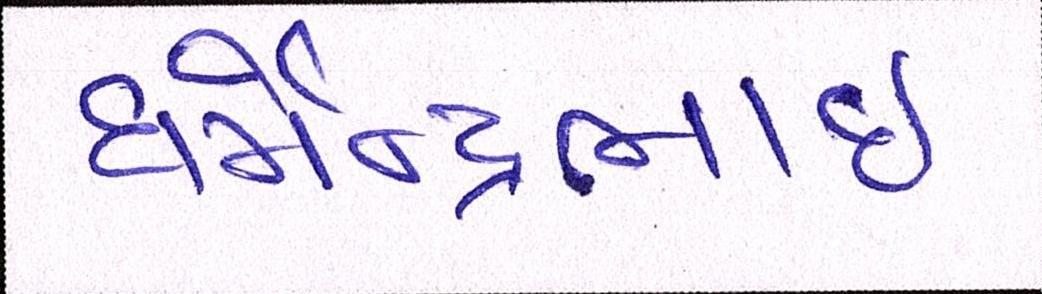 ધર્મેન્દ્રભાઇ